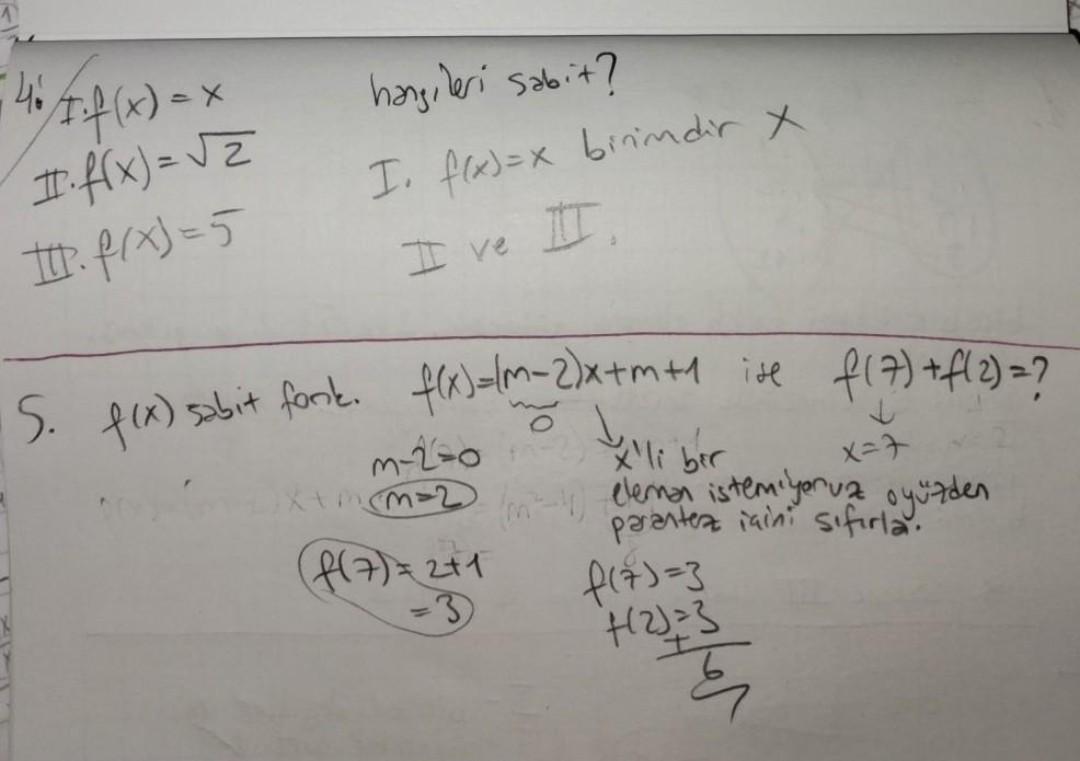 4. I. f(x) = x hangileri sabit?
II. f(x) = √2 I. f(x)=x birimdir X
III. f(x) = 5 II ve III.
5. f(x) sabit fonk. f(x)=(m-2)x+m+1 ise f(7)+f(2)=?
0
m-2=0 x'li bir x=7
m=2 eleman istemiyoruz o yüzden
parantez içini sıfırla.
f(7)=2+1 f(7)=3
=3 f(2)=3
+
6